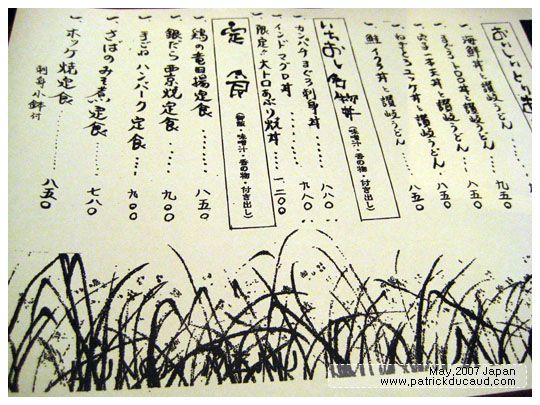 一、海鮮丼と讃岐うどん……… 九五〇
一、まぐろとろろ丼と讃岐うどん…… 八五〇
一、ねぎとろユッケ丼と讃岐うどん… 八五〇
一、鮭イクラ丼と讃岐うどん
いちおし名物丼 (味噌汁・香の物・付き出し)
一、カンパチまぐろ刺身丼…… 八八〇
一、インドマグロ丼…… 九八〇
一、限定!!大トロあぶり焼丼…… 一、二〇〇
定食 (御飯・味噌汁・香の物・付き出し)
一、鶏の竜田揚定食……… 八五〇
一、銀だら西京焼定食…… 九〇〇
一、手ごねハンバーグ定食… 九〇〇
一、さばのみそ煮定食……… 七八〇
一、ホッケ焼定食……… 八五〇
刺身小鉢付
May,2007 Japan
www.patrickducaud.com